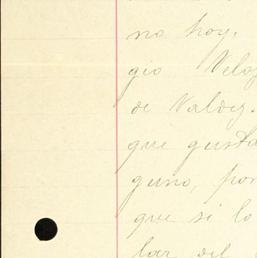 no hoy.
gio Veloz
de Valdez.
que gusta
guno, por
que si lo
lar del